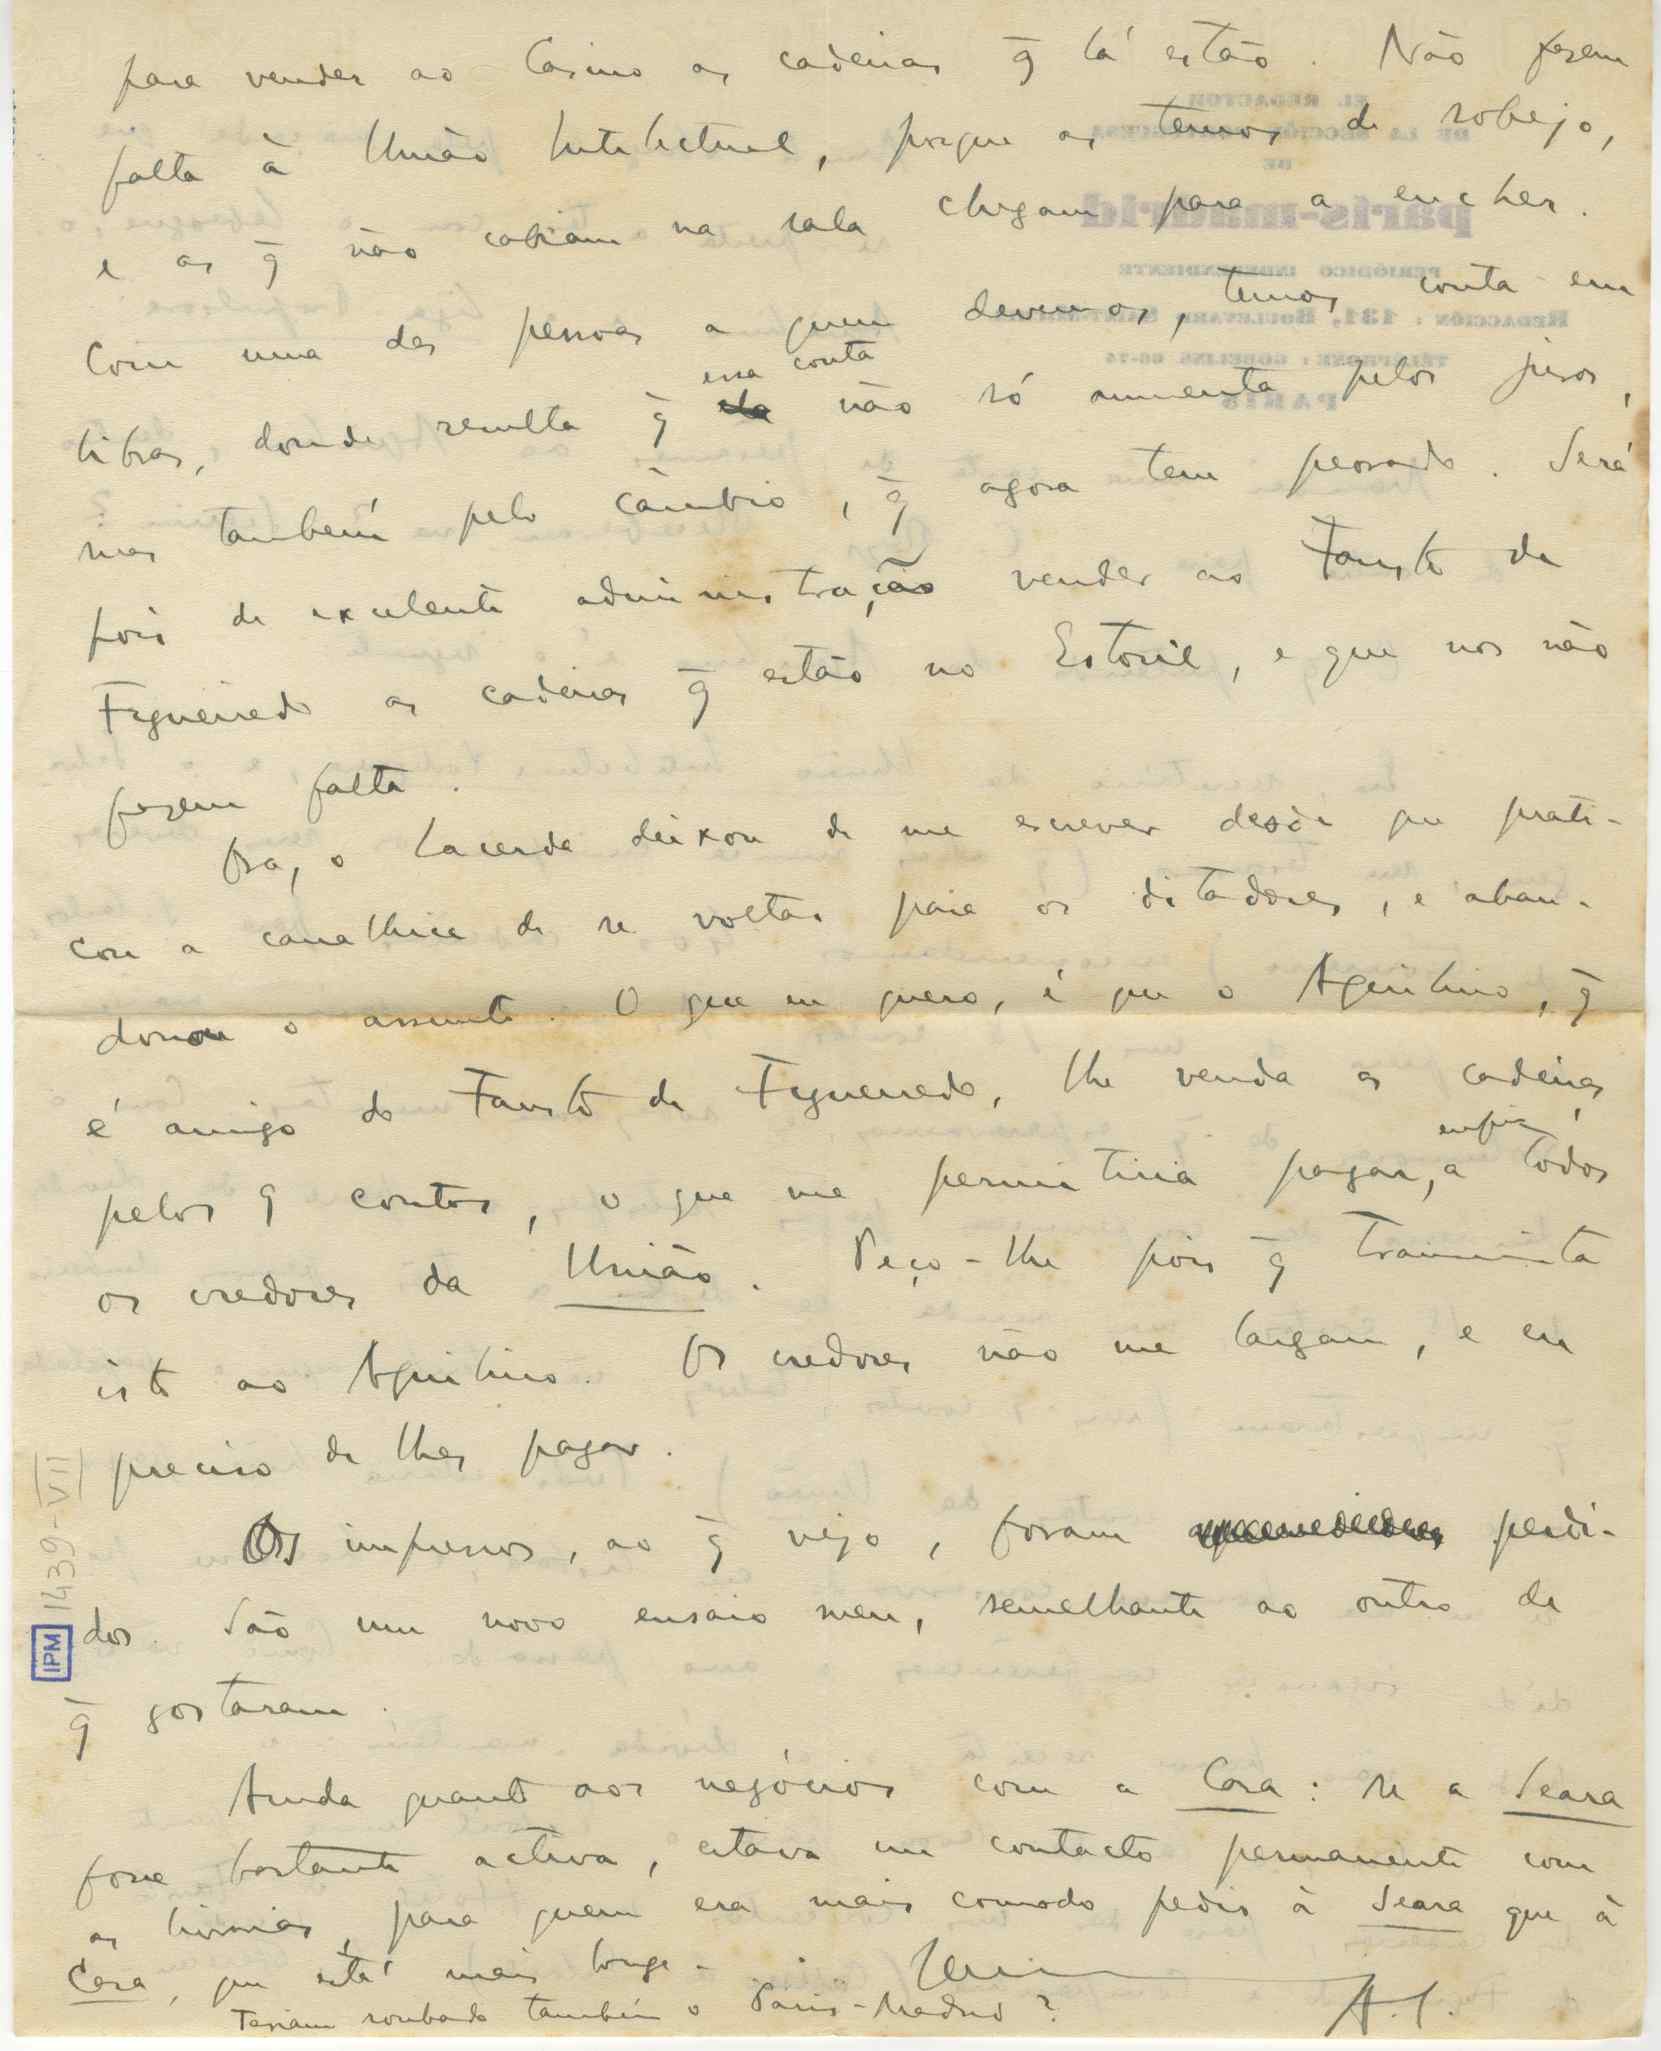 para vender ao Casino as cadeiras q̄ lá estão. Não fazem
falta à União Intelectual, porque as temos de sobejo,
e as q̄ não cabiam na sala chegam para a encher.
Com uma das pessoas a quem devemos, temos conta em
libras, donde resulta q̄ essa conta não só aumenta pelos juros,
mas também pelo câmbio, q̄ agora tem peorado. Será
pois de excelente administração vender ao Fausto de
Figueiredo as cadeiras q̄ estão no Estoril, e que nos não
fazem falta.
Ora, o Lacerda deixou de me escrever desde que prati-
cou a canalhice de se voltar para os ditadores, e aban-
donou o assunto. O que eu quero, é que o Aquilino, q̄
é amigo do Fausto de Figueiredo, lhe venda as cadeiras
pelos 9 contos, o que me permitiria pagar, enfim, a todos
os credores da União. Peço-lhe pois q̄ transmita
isto ao Aquilino. Os credores não me largam, e eu
preciso de lhes pagar.
Os impressos, ao q̄ vejo, foram perdi-
dos. São um novo ensaio meu, semelhante ao outro de
q̄ gostaram.
Ainda quanto aos negócios com a Casa: se a Seara
fosse bastante activa, estava em contacto permanente com
as livrarias, para quem era mais comodo pedir à Seara que à
Casa, que está mais longe.
A. S.
Teriam roubado também o Paris-Madrid?
IPM 1439-VII
EL REDACTOR
DE LA SECCIÓN
DE
paris-madrid
PERIÓDICO INDEPENDIENTE
REDACCIÓN : 131, BOULEVARD SAINT-MICHEL
TÉLÉPHONE : GOBELINS 66-74
PARIS